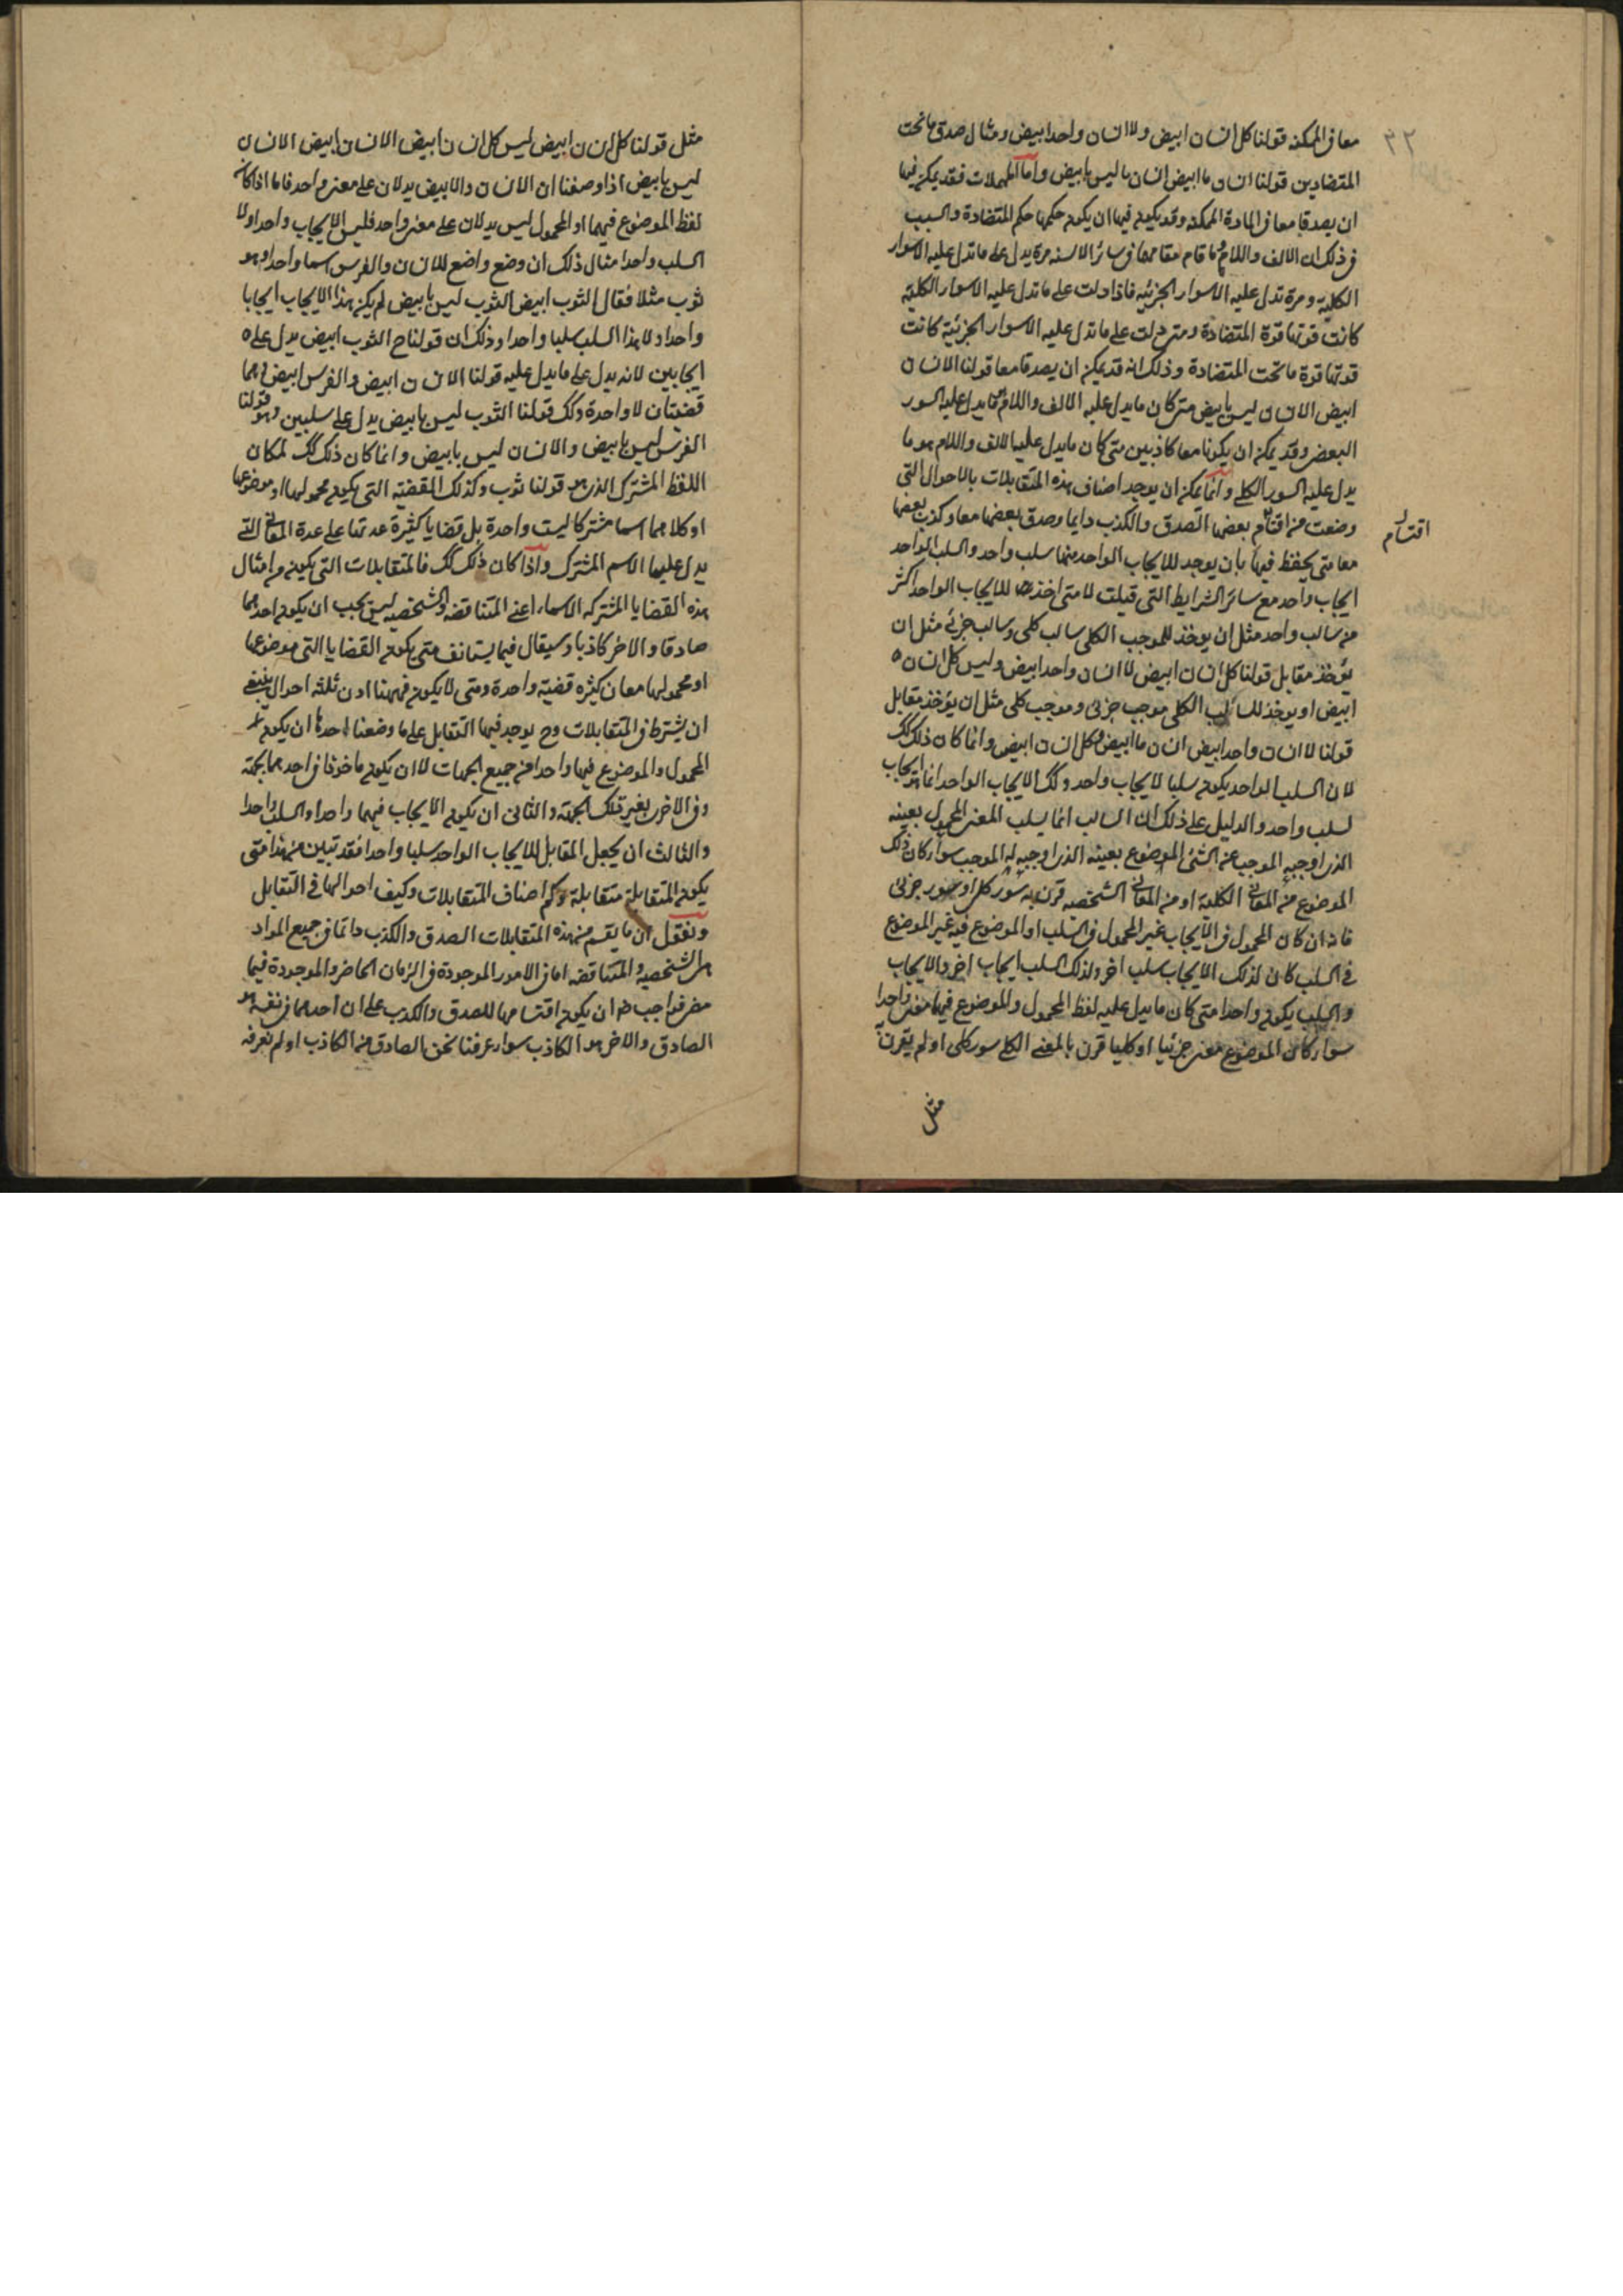 ٣٢
معا في الممكنة قولنا كل انسان ابيض ولا انسان واحد ابيض ومثال صدق ما تحت
المتضادين قولنا انسان ما ابيض انسان ما ليس بابيض واما المهملات فقد يمكن فيها
ان يصدقا معا في المادة الممكنة وقد يكون فيها ان يكون حكمها حكم المتضادة والسبب
في ذلك ان الالف واللام وما قام مقامهما في سائر الالسنه مرة يدل على ما تدل عليه الاسوار
الكلية ومرة تدل عليه الاسوار الجزئيه فاذا دلت على ما تدل عليه الاسوار الكلية
كانت قوتها قوة المتضادة ومتى دلت على ما تدل عليه الاسوار الجزئية كانت
قوتها قوة ما تحت المتضادة وذلك انه قد يمكن ان يصدقا معا قولنا الانسان
ابيض الانسان ليس بابيض متى كان ما يدل عليه الالف واللام ما يدل عليه السور
البعض وقد يمكن ان يكونا معا كاذبين متى كان ما يدل عليها الالف واللام هو ما
يدل عليه السور الكلي وانما يمكن ان يوجد اصناف هذه المتقابلات بالاحوال التي
وضعت من اقتسام بعضها الصدق والكذب دايما وصدق بعضها معا وكذب بعضها
اقتسام
معا متى يحفظ فيها بان يوجد للايجاب الواحد منها سلب واحد والسلب الواحد
ايجاب واحد مع سائر الشرايط التي قيلت لا متى اخذ للايجاب الواحد اكثر
من سالب واحد مثل ان يوخذ للموجب الكلي سالب كلي وسالب جزئي مثل ان
يؤخذ مقابل قولنا كل انسان ابيض لا انسان واحد ابيض وليس كل انسان
ابيض او يوخذ للسالب الكلي موجب جزئي وموجب كلي مثل ان يؤخذ مقابل
قولنا لا انسان واحد ابيض انسان ما ابيض وكل انسان ابيض وانما كان ذلك كك
لان السلب الواحد يكون سلبا لايجاب واحد وكك الايجاب الواحد انما هو ايجاب
لسلب واحد والدليل على ذلك ان السالب انما يسلب المعنى المحمول بعينه
الذي اوجبه الموجب عن الشئ الموضوع بعينه الذي اوجبه له الموجب سواء كان ذلك
الموضوع من المعاني الكلية او من المعاني الشخصيه قرن به سور كلي او سور جزئي
فانه ان كان المحمول في الايجاب غير المحمول في السلب او الموضوع فيه غير الموضوع
في السلب كان لذلك الايجاب سلب اخر ولذلك السلب ايجاب اخر والايجاب
والسلب يكون واحدا متى كان ما يدل عليه لفظ المحمول والموضوع فيها معنى واحدا
سواء كان الموضوع معنى جزئيا او كليا قرن بالمعنى الكلي سور كلي او لم يقرن به
مثل
مثل قولنا كل انسان ابيض ليس كل انسان ابيض الانسان ابيض الانسان
ليس بابيض اذا وصفنا ان الانسان والابيض يدلان على معنى واحد فاما اذا كان
لفظ الموضوع فيهما او المحمول ليس يدلان على معنى واحد فليس الايجاب واحدا ولا
السلب واحدا مثال ذلك ان وضع واضع للانسان والفرس اسما واحدا وهو
ثوب مثلا فقال الثوب ابيض الثوب ليس بابيض لم يكن هذا الايجاب ايجابا
واحدا ولا هذا السلب سلبا واحدا وذلك ان قولنا ح الثوب ابيض يدل على
ايجابين لانه يدل على ما يدل عليه قولنا الانسان ابيض والفرس ابيض وهما
قضيتان لا واحدة وكك قولنا الثوب ليس بابيض يدل على سلبين وهو قولنا
الفرس ليس بابيض والانسان ليس بابيض وانما كان ذلك كك لمكان
اللفظ المشترك الذي هو قولنا ثوب وكذلك القضيه التي يكون محمولها او موضوعها
او كلاهما اسما مشتركا ليست واحدة بل قضايا كثيرة عدتها على عدة المعاني التي
يدل عليها الاسم المشترك واذا كان ذلك كك فالمتقابلات التي يكون من امثال
هذه القضايا المشتركه الاسماء اعني المتناقضه والشخصيه ليس يجب ان يكون احدهما
صادقا والاخر كاذبا وسيقال فيما يستانف متى يكون القضايا التي موضوعها
او محمولها معان كثيره قضية واحدة ومتى لا يكون فههنا اذن ثلثه احوال ينبغي
ان يشترط في المتقابلات وح يوجد فيها التقابل على ما وضعنا احدها ان يكون
المحمول والموضوع فيها واحدا من جميع الجهات لا ان يكون ماخوذا في احدهما بجهة
وفي الاخرى بغير تلك الجهة والثاني ان يكون الايجاب فيهما واحدا والسلب واحدا
والثالث ان يجعل المقابل للايجاب الواحد سلبا واحدا فقد تبين من هذا متى
يكون المتقابلة متقابلة وكم اصناف المتقابلات وكيف احوالها في التقابل
ونقول ان ما يقسم من هذه المتقابلات الصدق والكذب دائما في جميع المواد
هي الشخصيه والمتناقضه اما في الامور الموجودة في الزمان الحاضر والموجودة فيما
مضى فواجب ضرورة ان يكون اقتسامها للصدق والكذب على ان احدهما في نفسه هو
الصادق والاخر هو الكاذب سواء عرفنا نحن الصادق من الكاذب او لم نعرفه